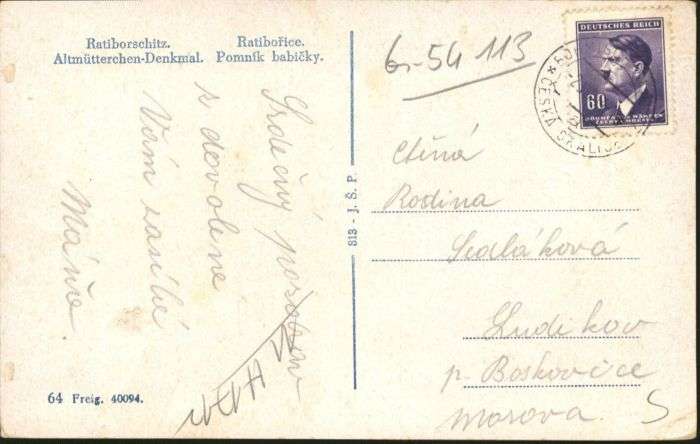 Ratiborschitz.
Altmütterchen-Denkmal.
Ratibořice.
Pomník babičky.
Srdečný pozdrav
s dovolené
Vám zasílá
Máňa.
64 Freig. 40094.
813 - J. Š. P.
6-54 113
DEUTSCHES REICH
60
BÖHMEN U. MÄHREN
ČECHY A MORAVA
ČESKÁ SKALICE
Ctěná
Rodina
Sedláková
Ludikov
p. Boskovice
Morava